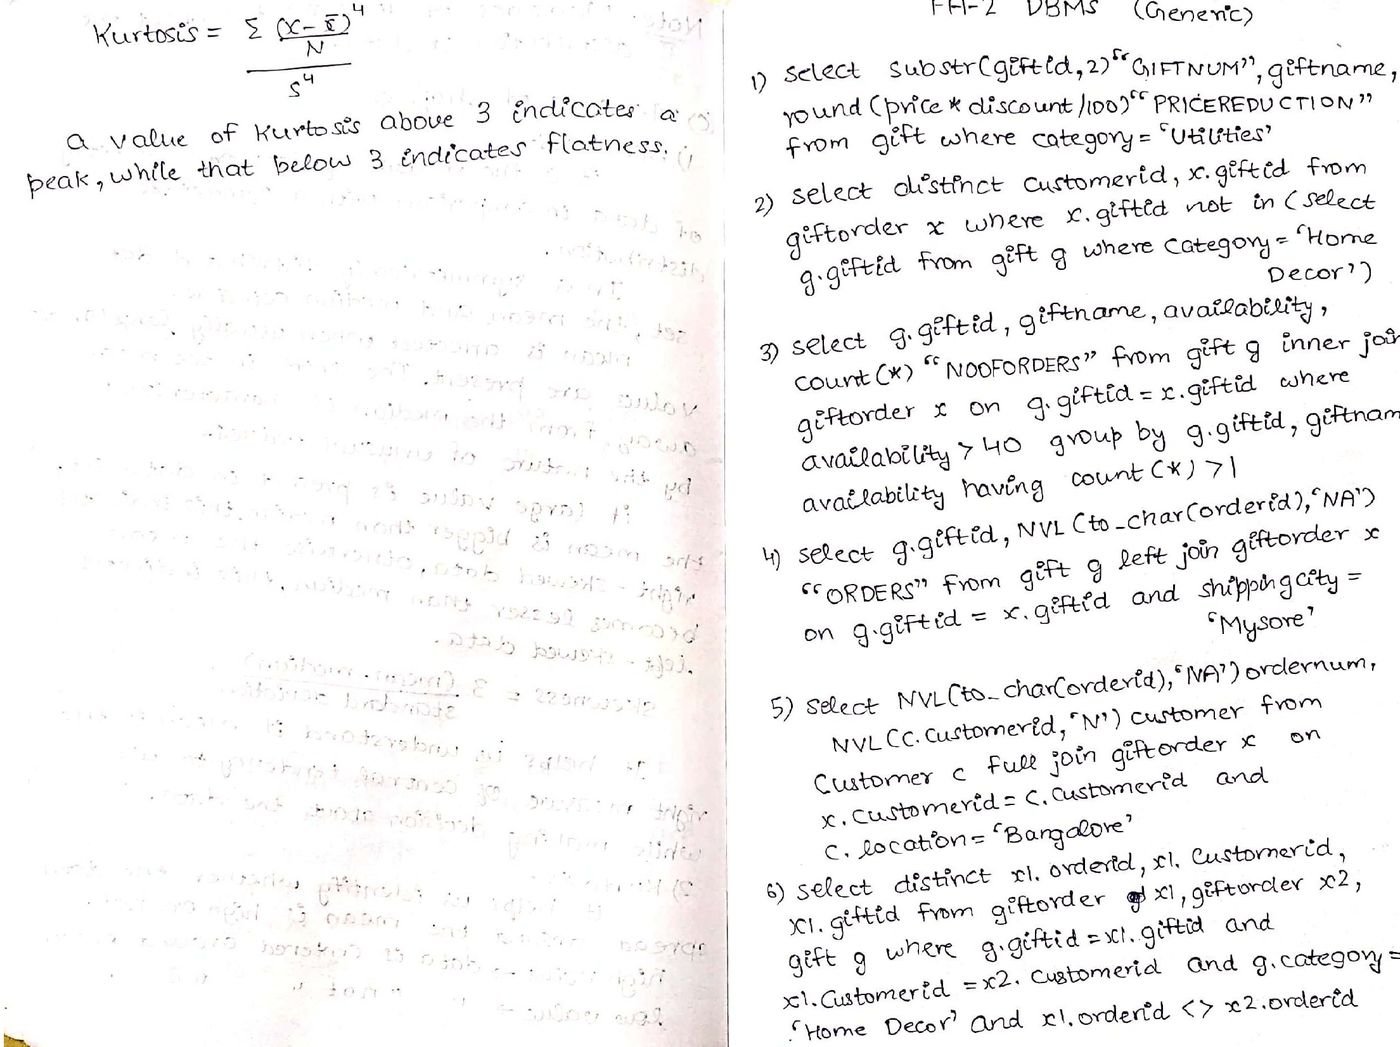 Kurtosis = Σ (x-x̄)⁴
N
s⁴
a value of Kurtosis above 3 indicates a
peak, while that below 3 indicates flatness.
FA-2 DBMS (Generic)
1) select substr(giftid,2)"GIFTNUM", giftname,
round(price * discount/100)"PRICEREDUCTION"
from gift where category = 'Utilities'
2) select distinct customerid, x.giftid from
giftorder x where x.giftid not in (select
g.giftid from gift g where category = 'Home
Decor')
3) select g.giftid, giftname, availability,
count(*) "NOOFORDERS" from gift g inner join
giftorder x on g.giftid = x.giftid where
availability > 40 group by g.giftid, giftnam
availability having count(*) >1
4) select g.giftid, NVL(to_char(orderid),'NA')
"ORDERS" from gift g left join giftorder x
on g.giftid = x.giftid and shippingcity =
'Mysore'
5) select NVL(to_char(orderid),'NA') ordernum,
NVL(c.customerid,'N') customer from
customer c full join giftorder x on
x.customerid = c.customerid and
c.location = 'Bangalore'
6) select distinct x1.orderid, x1.customerid,
x1.giftid from giftorder x1, giftorder x2,
gift g where g.giftid = x1.giftid and
x1.customerid = x2.customerid and g.category =
'Home Decor' and x1.orderid <> x2.orderid